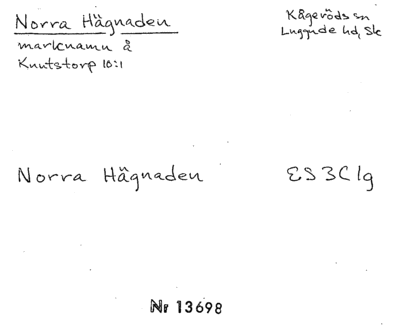 Norra Hägnaden
marknamn å
Knutstorp 10:1
Kågeröds sn
Luggude hd, Sk
Norra Hägnaden
ES 3C 1g
Nr 13698